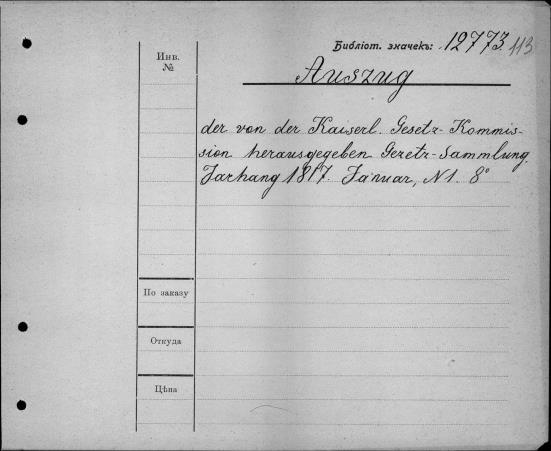 Библіот. значекъ: 12773. 113
Инв.
№
Auszug
der von der Kaiserl. Gesetz-Kommis-
sion herausgegeben Gezetz-Sammlung.
Jarhang 1817. Januar, N1. 8°
По заказу
Откуда
Цѣна